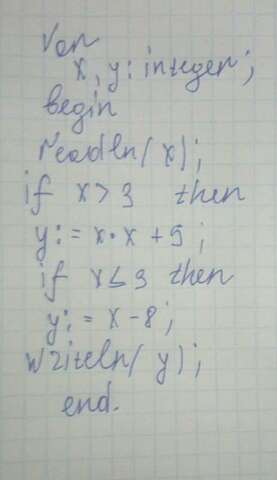 Var
x, y: integer;
begin
readln(x);
if x>3 then
y:= x·x + 5;
if x≤3 then
y:= x-8;
writeln(y);
end.